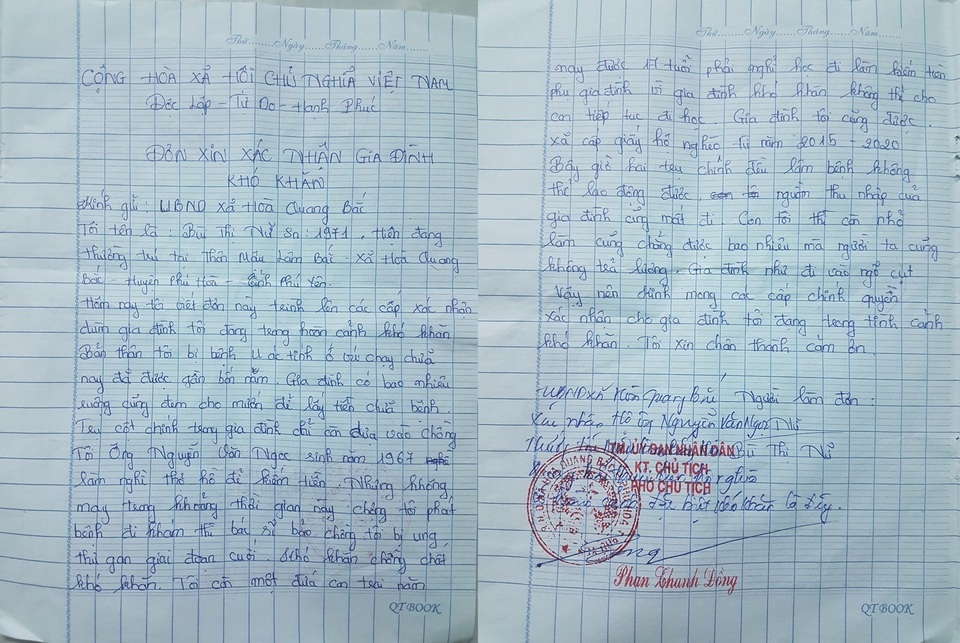 Thứ........Ngày......Tháng......Năm........
CỘNG HÒA XÃ HỘI CHỦ NGHĨA VIỆT NAM
Độc Lập - Tự Do - Hạnh Phúc
ĐƠN XIN XÁC NHẬN GIA ĐÌNH
KHÓ KHĂN
Kính gửi: UBND xã Hòa Quang Bắc
Tôi tên là: Bùi Thị Nử Sn: 1971, hiện đang
thường trú tại Thôn Mậu Lâm Bắc - xã Hòa Quang
Bắc - Huyện Phú Hòa - tỉnh Phú Yên.
Hôm nay tôi viết đơn này trình lên các cấp xác nhận
dùm gia đình tôi đang trong hoàn cảnh khó khăn
Bản thân tôi bị bệnh u ác tính ở chạy chữa
nay đã được gần bốn năm. Gia đình có bao nhiêu
ruộng cũng đem cho mướn để lấy tiền chữa bệnh.
Trụ cột chính trong gia đình chỉ còn dựa vào chồng
Tôi Ông Nguyễn Văn Ngọc sinh năm 1967
làm nghề thợ hồ để kiếm tiền. Nhưng không
may trong khoảng thời gian này chồng tôi phát
bệnh đi khám thì bác sĩ bảo chồng tôi bị ung
thư gan giai đoạn cuối. khó khăn chồng chất
khó khăn. Tôi còn một đứa con trai năm
QT BOOK
Thứ........Ngày......Tháng......Năm........
nay được 17 tuổi phải nghỉ học đi làm kiếm tiền
phụ gia đình vì gia đình khó khăn không thể cho
con tiếp tục đi học. Gia đình tôi cũng được
xã cấp giấy hộ nghèo từ năm 2015 - 2020
Bây giờ hai trụ chính đều lâm bệnh không
thể lao động được, nguồn thu nhập của
gia đình cũng mất đi Con tôi thì còn nhỏ
làm cũng chẳng được bao nhiêu mà người ta cũng
không trả lương. Gia đình như đi vào ngõ cụt
Vậy nên kính mong các cấp chính quyền
xác nhận cho gia đình tôi đang trong tình cảnh
khó khăn. Tôi xin chân thành cảm ơn.
UBND xã Hòa Quang Bắc Người làm đơn:
Xác nhận Hộ ông Nguyễn Văn Ngọc
Bùi Thị Nử
TM. ỦY BAN NHÂN DÂN
KT. CHỦ TỊCH
PHÓ CHỦ TỊCH
Phan Thanh Đồng
QT BOOK